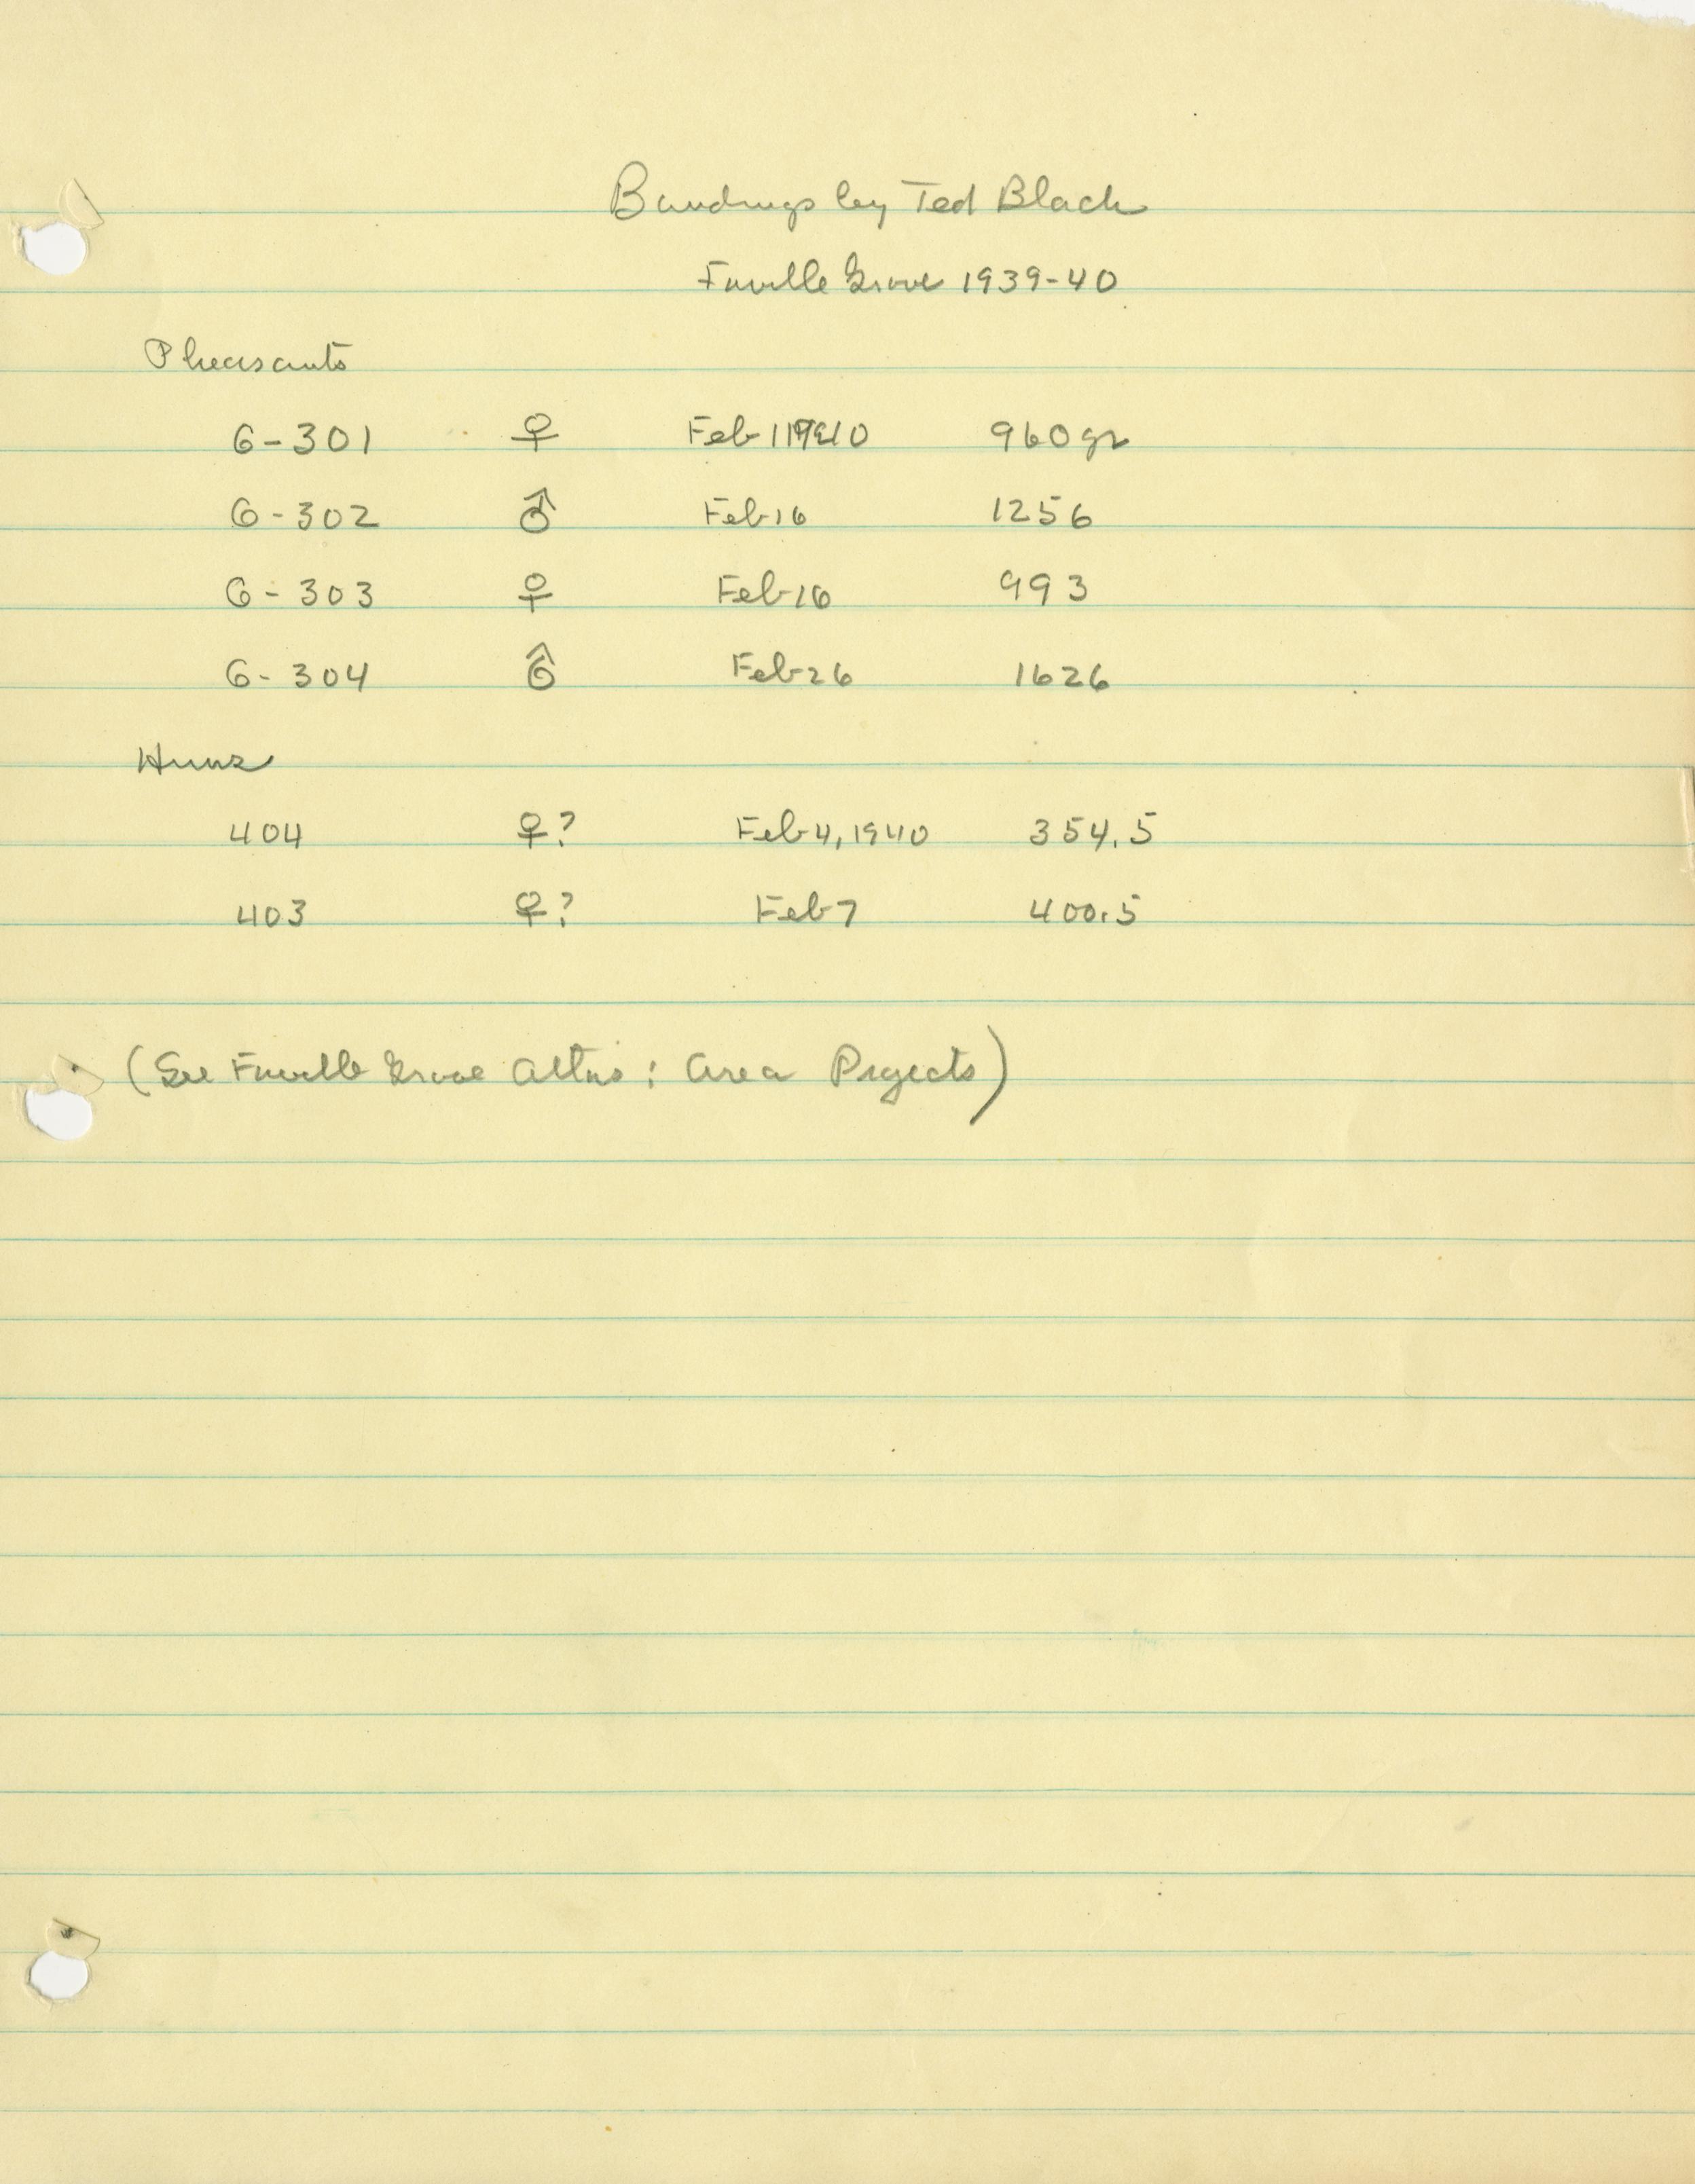 Bandings by Ted Black
Faville Grove 1939-40
Pheasants
6-301 ♀ Feb 1940 960gr
6-302 ♂ Feb 16 1256
6-303 ♀ Feb 16 993
6-304 ♂ Feb 26 1626
Huns
404 ♀? Feb 4, 1940 354.5
403 ♀? Feb 7 400.5
(See Faville Grove : Area Projects)